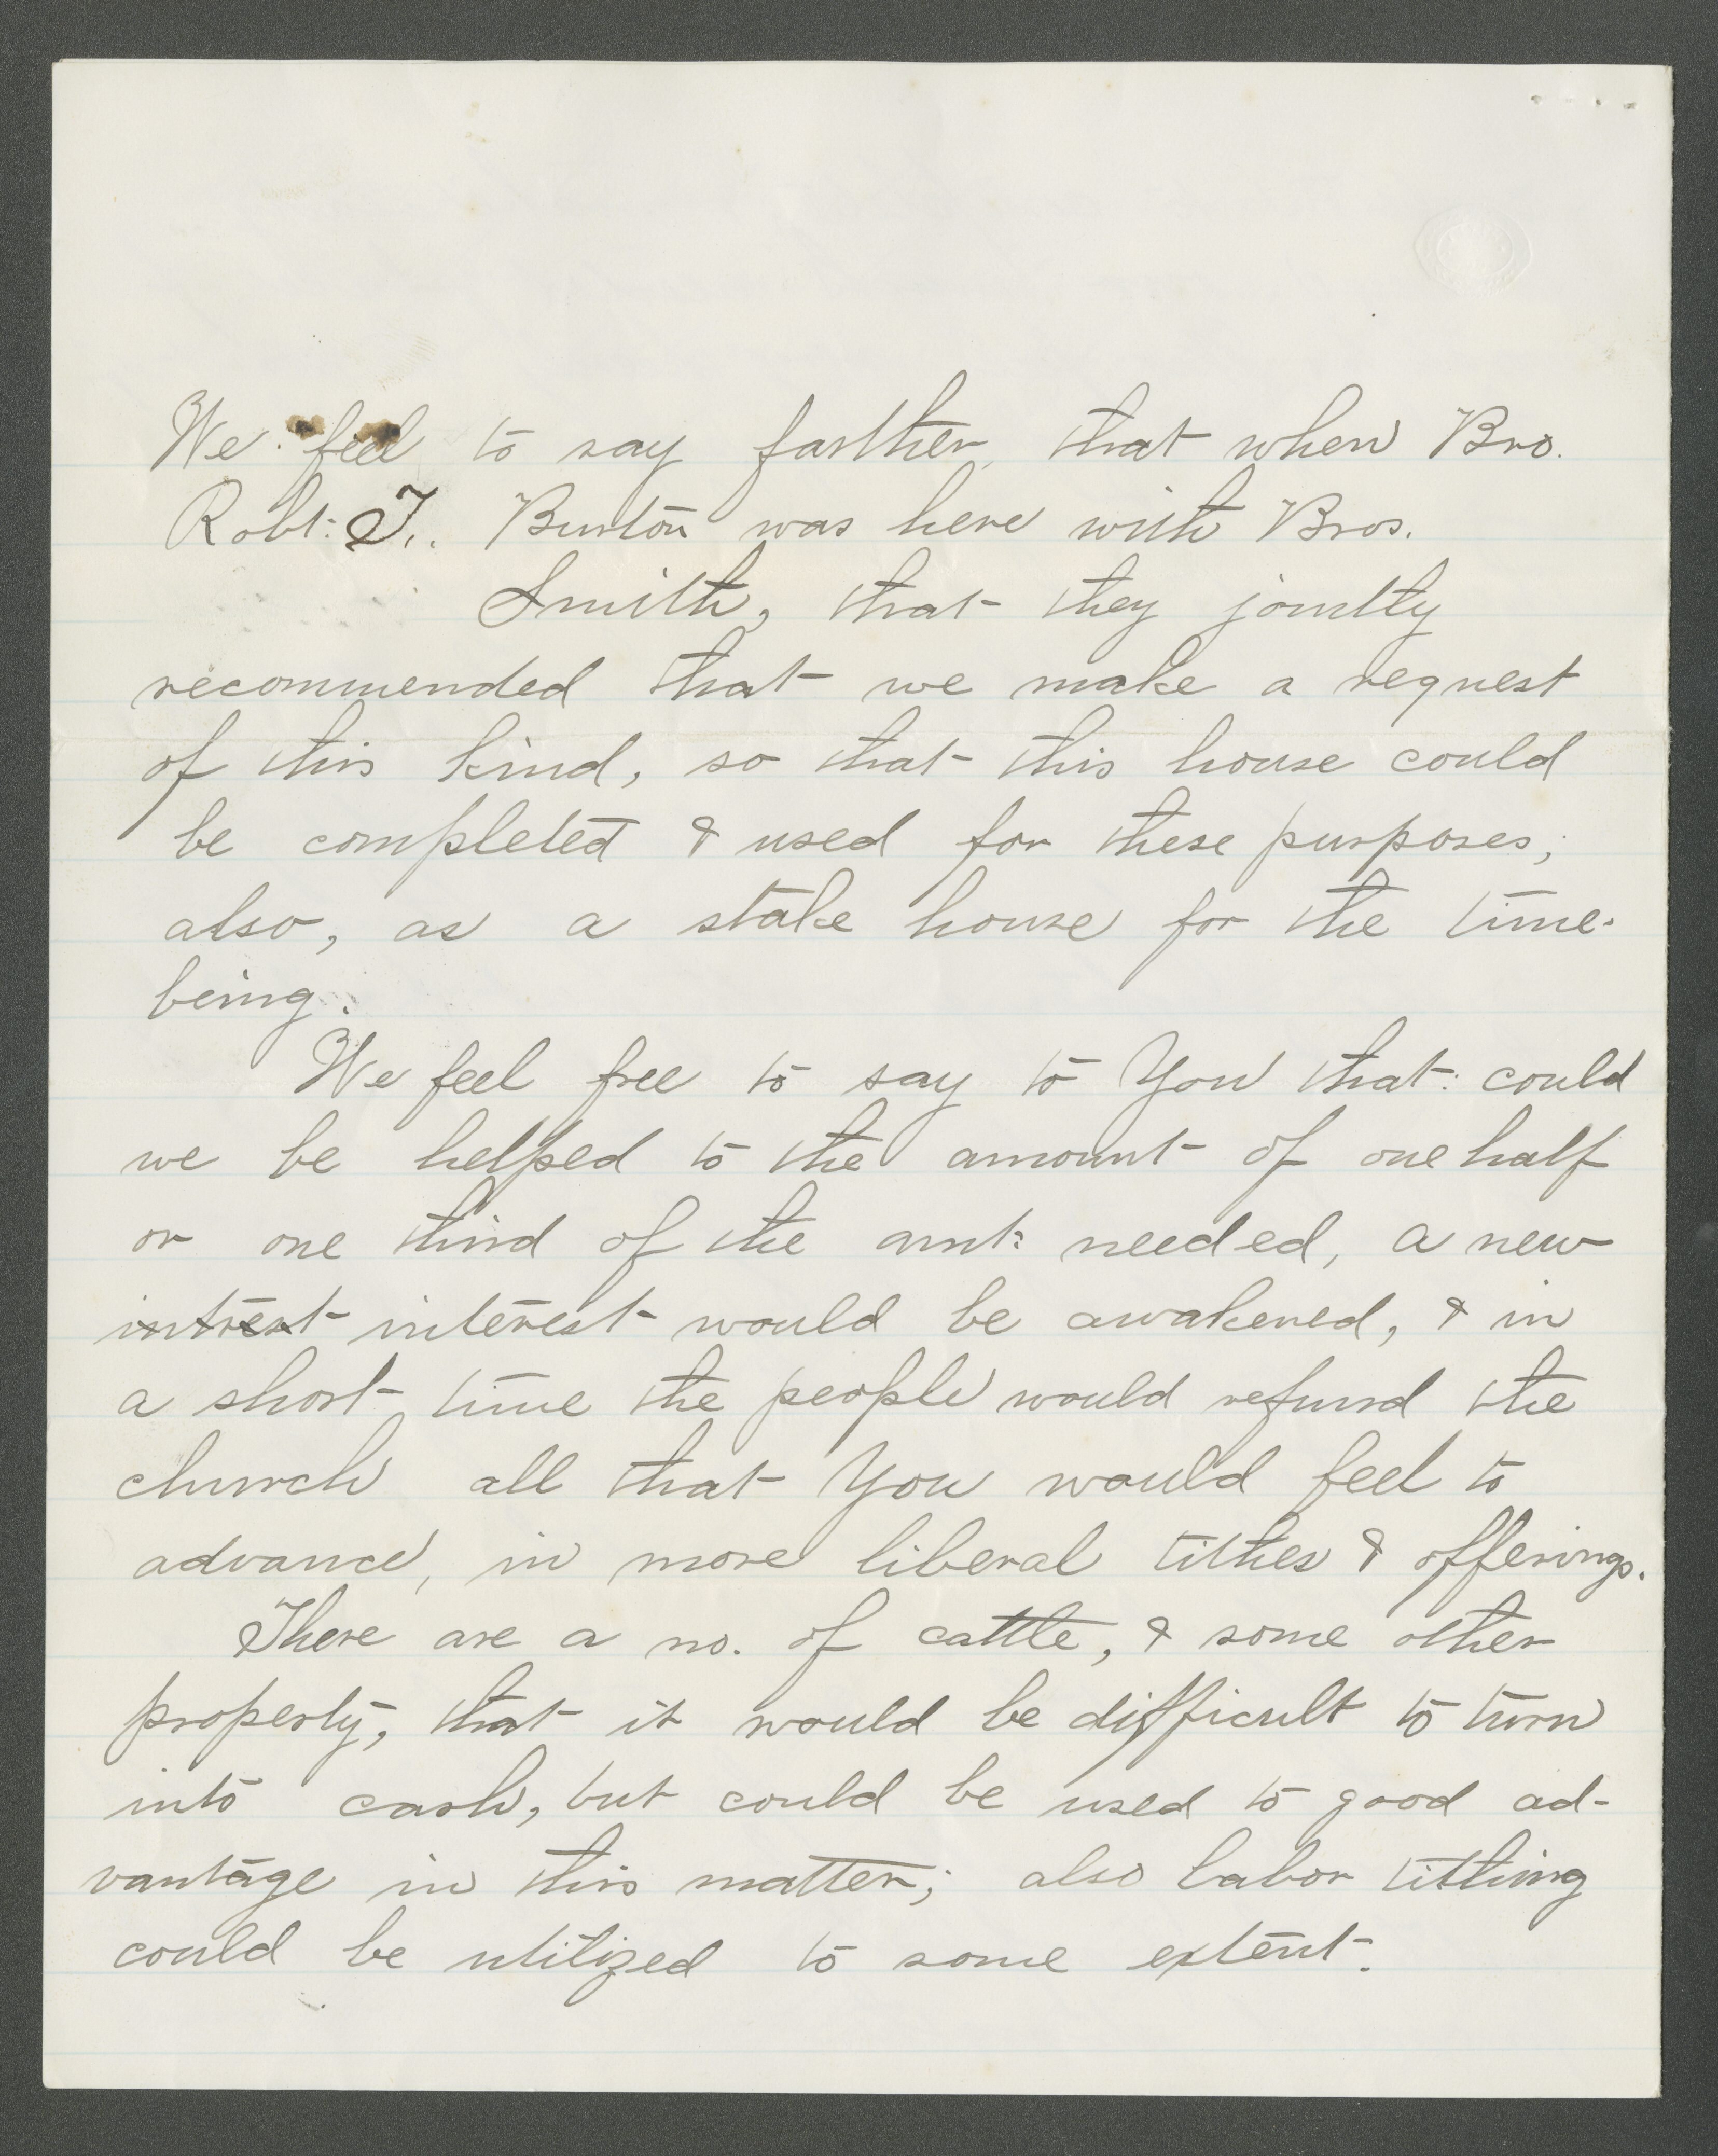 We feel to say farther, that when Bro.
Robt: T.. Burton was here with Bros.
Smith, that they jointly
recommended that we make a request
of this kind, so that this house could
be completed & used for these purposes;
also, as a stake house for the time-
being.
We feel free to say to You that: could
we be helped to the amount of one half
or one third of the amt: needed, a new
intrest interest would be awakened, & in
a short time the people would refund the
church all that You would feel to
advance, in more liberal tithes & offerings.
There are a no. of cattle, & some other
property, that it would be difficult to turn
into cash, but could be used to good ad-
vantage in this matter; also labor tithing
could be utilized to some extent.